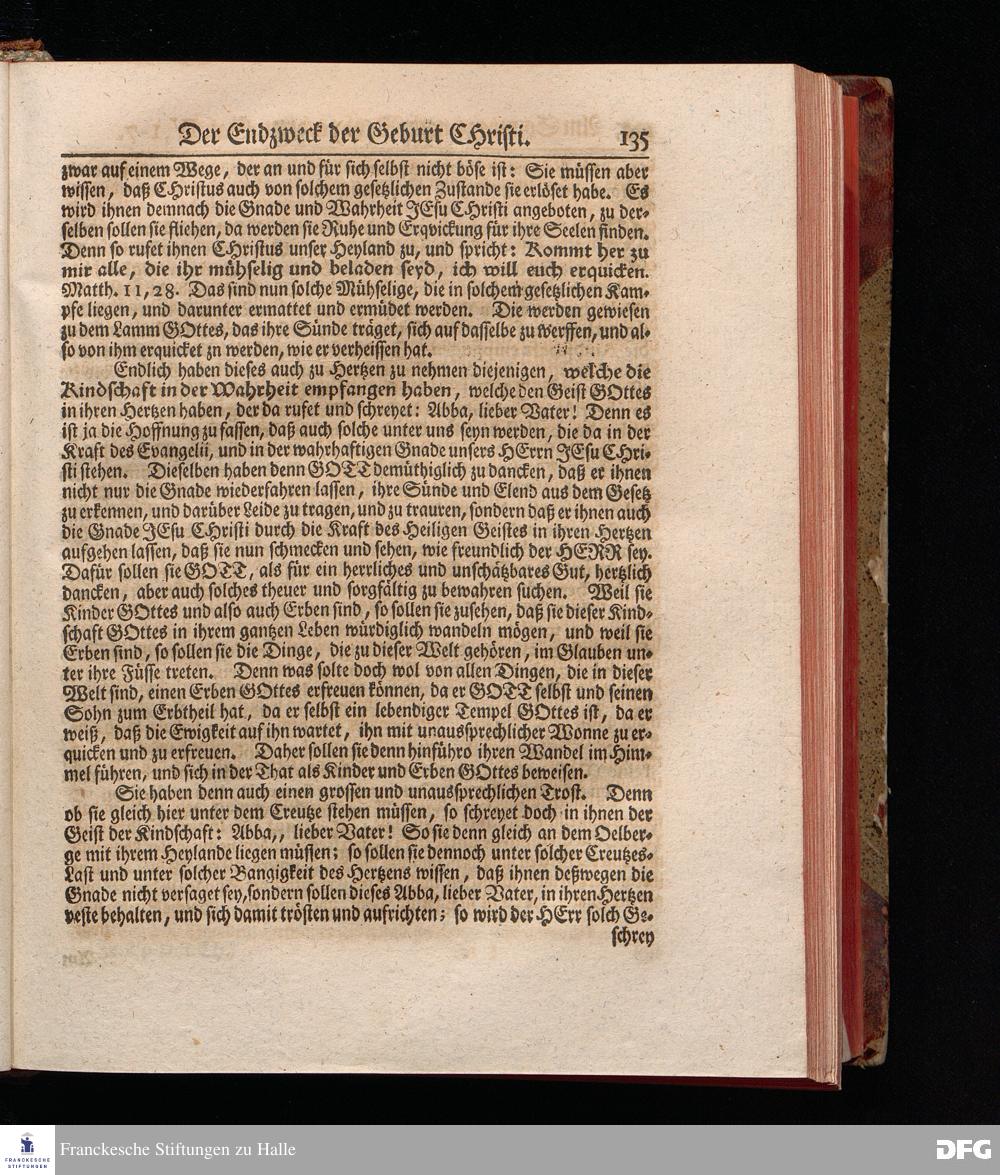 Der Endzweck der Geburt CHristi. 135
zwar auf einem Wege, der an und für sich selbst nicht böse ist: Sie müssen aber
wissen, daß CHristus auch von solchem gesetzlichen Zustande sie erlöset habe. Es
wird ihnen demnach die Gnade und Wahrheit JEsu CHristi angeboten, zu der-
selben sollen sie fliehen, da werden sie Ruhe und Erqvickung für ihre Seelen finden.
Denn so rufet ihnen CHristus unser Heyland zu, und spricht: Kommt her zu
mir alle, die ihr mühselig und beladen seyd, ich will euch erquicken.
Matth. 11, 28. Das sind nun solche Mühselige, die in solchem gesetzlichen Kam-
pfe liegen, und darunter ermattet und ermüdet werden. Die werden gewiesen
zu dem Lamm GOttes, das ihre Sünde träget, sich auf dasselbe zu werffen, und al-
so von ihm erquicket zn werden, wie er verheissen hat.
Endlich haben dieses auch zu Hertzen zu nehmen diejenigen, welche die
Kindschaft in der Wahrheit empfangen haben, welche den Geist GOttes
in ihren Hertzen haben, der da rufet und schreyet: Abba, lieber Vater! Denn es
ist ja die Hoffnung zu fassen, daß auch solche unter uns seyn werden, die da in der
Kraft des Evangelii, und in der wahrhaftigen Gnade unsers HErrn JEsu CHri-
sti stehen. Dieselben haben denn GOTT demüthiglich zu dancken, daß er ihnen
nicht nur die Gnade wiederfahren lassen, ihre Sünde und Elend aus dem Gesetz
zu erkennen, und darüber Leide zu tragen, und zu trauren, sondern daß er ihnen auch
die Gnade JEsu CHristi durch die Kraft des Heiligen Geistes in ihren Hertzen
aufgehen lassen, daß sie nun schmecken und sehen, wie freundlich der HERR sey.
Dafür sollen sie GOTT, als für ein herrliches und unschätzbares Gut, hertzlich
dancken, aber auch solches theuer und sorgfältig zu bewahren suchen. Weil sie
Kinder GOttes und also auch Erben sind, so sollen sie zusehen, daß sie dieser Kind-
schaft GOttes in ihrem gantzen Leben würdiglich wandeln mögen, und weil sie
Erben sind, so sollen sie die Dinge, die zu dieser Welt gehören, im Glauben un-
ter ihre Füsse treten. Denn was solte doch wol von allen Dingen, die in dieser
Welt sind, einen Erben GOttes erfreuen können, da er GOTT selbst und seinen
Sohn zum Erbtheil hat, da er selbst ein lebendiger Tempel GOttes ist, da er
weiß, daß die Ewigkeit auf ihn wartet, ihn mit unaussprechlicher Wonne zu er-
quicken und zu erfreuen. Daher sollen sie denn hinführo ihren Wandel im Him-
mel führen, und sich in der That als Kinder und Erben GOttes beweisen.
Sie haben denn auch einen grossen und unaussprechlichen Trost. Denn
ob sie gleich hier unter dem Creutze stehen müssen, so schreyet doch in ihnen der
Geist der Kindschaft: Abba,, lieber Vater! So sie denn gleich an dem Oelber-
ge mit ihrem Heylande liegen müssen; so sollen sie dennoch unter solcher Creutzes-
Last und unter solcher Bangigkeit des Hertzens wissen, daß ihnen deßwegen die
Gnade nicht versaget sey, sondern sollen dieses Abba, lieber Vater, in ihren Hertzen
veste behalten, und sich damit trösten und aufrichten; so wird der HErr solch Ge-
schrey
FRANCKESCHE STIFTUNGEN
Franckesche Stiftungen zu Halle
DFG